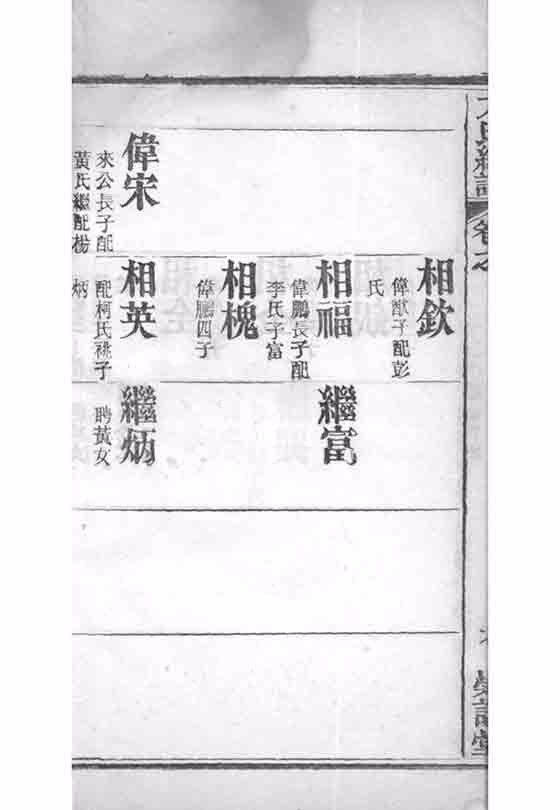 相欽
偉猷子配彭
氏
相福
偉鵬長子配
李氏子富
繼富
相槐
偉鵬四子
偉宋
來公長子配
黃氏繼配楊
相英
配柯氏祧子
炳
繼炳
聘黃女